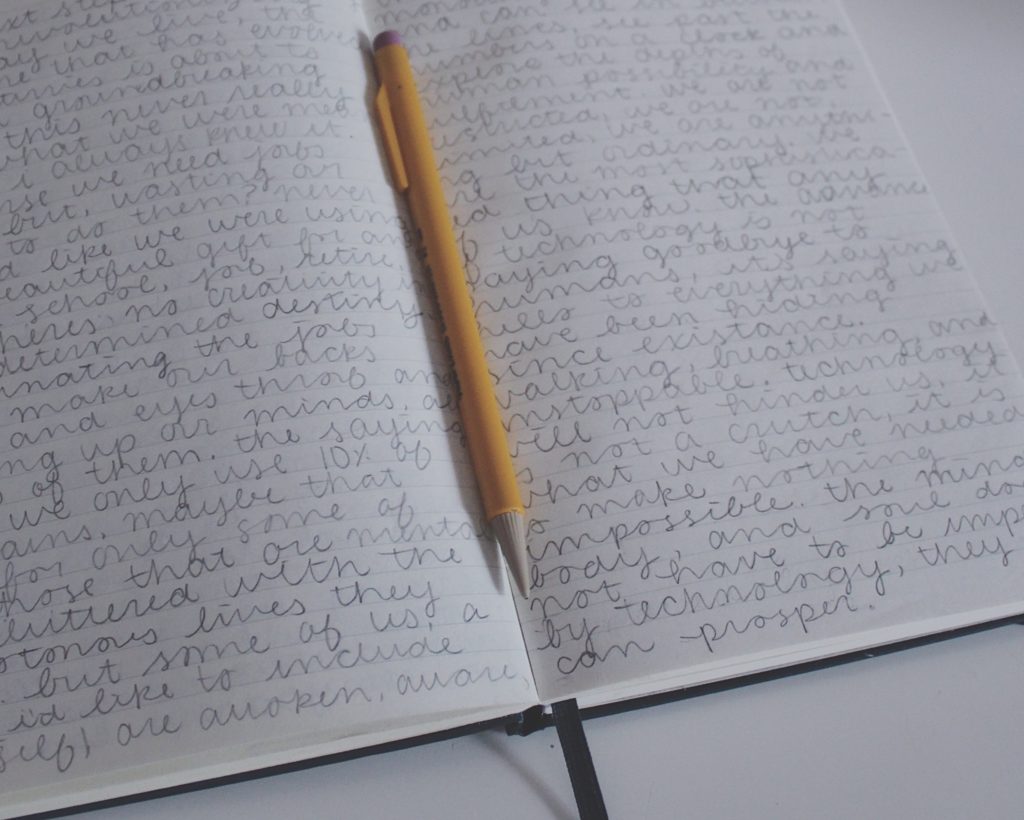 we live, the
that has evolve
is about to
groundbreaking
this never really
what we were me
i always knew it
se we need jobs
but, wasting our
to do them? never
d like we were using
eautiful gift for and
school, job, retire,
heres no creativity in
determined destiny
nating the jobs
make our backs
and eyes throb and
ng up our minds, as
of them. the saying
we only use 10% of
ains, maybe that
for only some of
hose that are menta
luttered with the
otonous lives they
but some of us, a
i'd like to include
self) are awoken, aware,
lines, see past the
numbers on a clock and
explore the depths of
human possibility and
we are not
restricted, we are not
imited, we are anythi
ng but ordinary. we
the most sophistica
d thing that any
us know. the advance
technology is not
saying goodbye to
humans, it's saying
to everything we
have been hiding
since existance.
walking, breathing, and
unstoppable. technology
will not hinder us, it
s not a crutch, it is
what we have needed
o make nothing
impossible. the mind
body, and soul do
not have to be imp
by technology, they
can prosper.